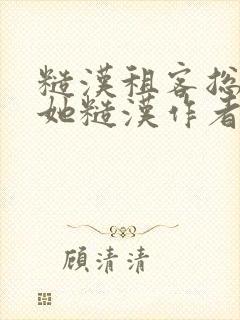 糙漢租客総
她糙漢作者
顧清清